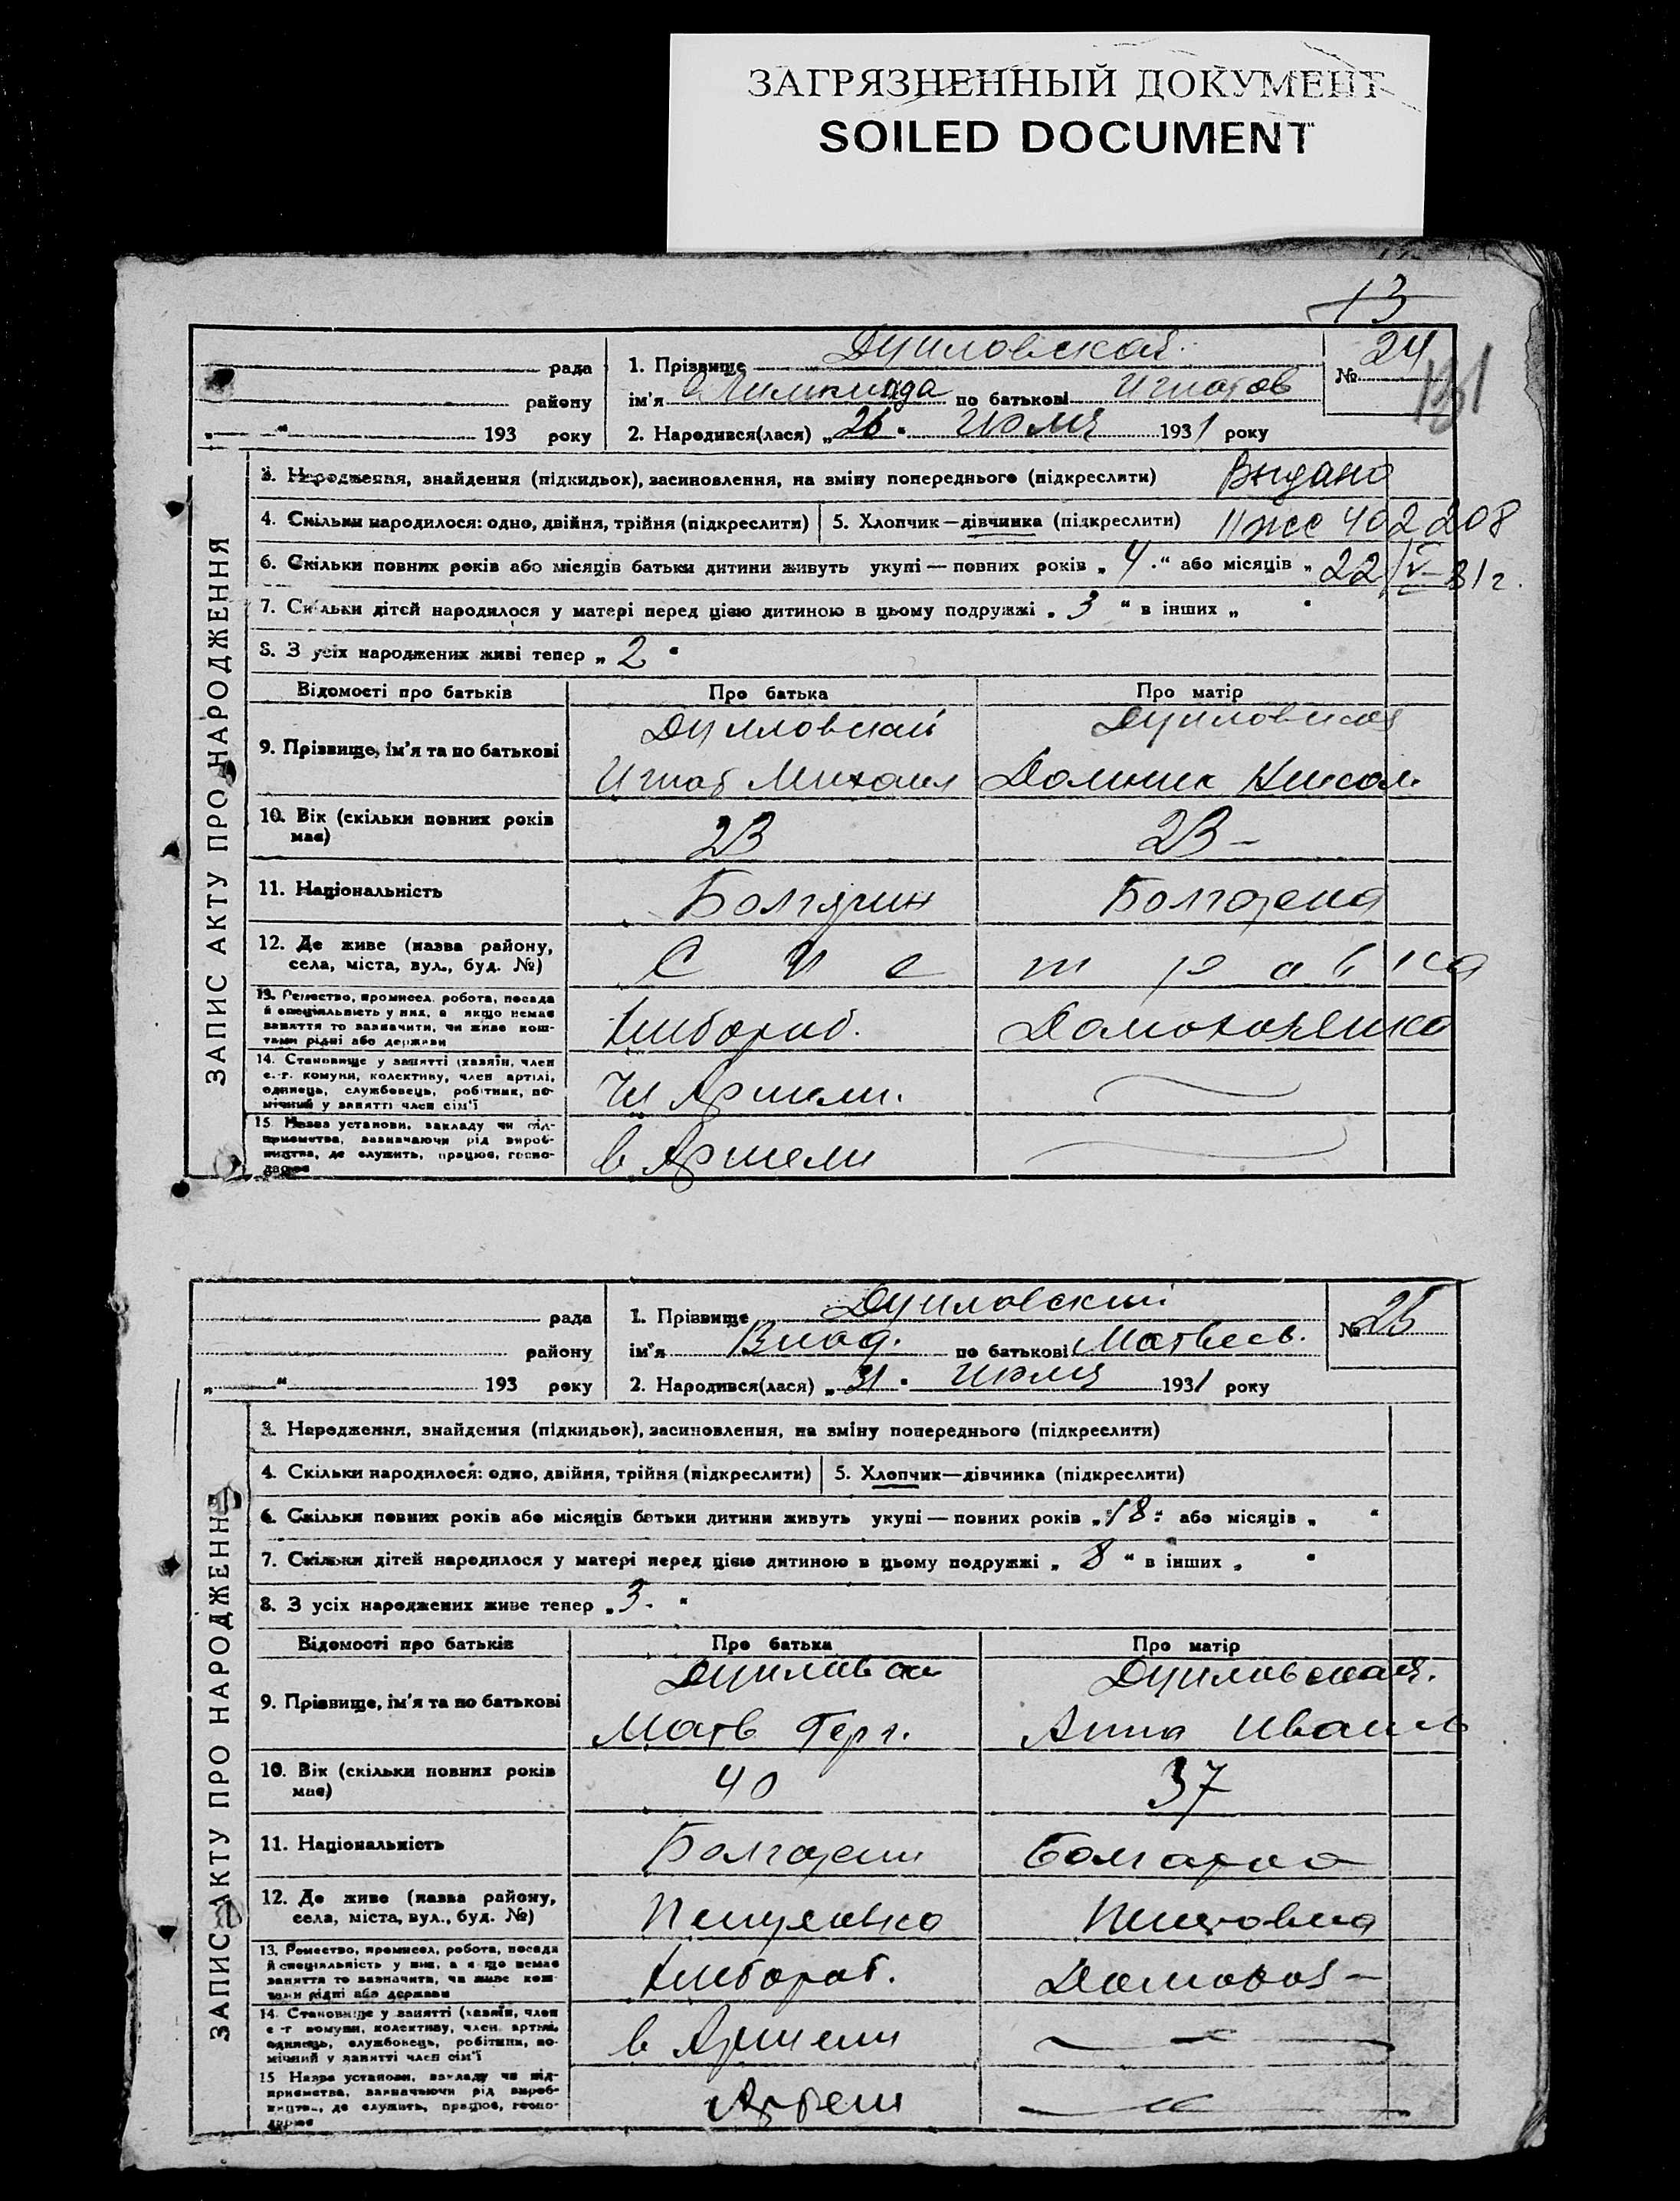 ЗАГРЯЗНЕННЫЙ ДОКУМЕНТ
SOILED DOCUMENT
13
рада
району
193 року
1. Прізвище
№ 24
131
ім'я по батькові Игнатов
2. Народився(лася) „26“ Июля 1931 року
ЗАПИС АКТУ ПРО НАРОДЖЕННЯ
3. Народження, знайдення (підкидьок), засиновлення, на зміну попереднього (підкреслити) Выдано
4. Скільки народилося: одно, двійня, трійня (підкреслити) 5. Хлопчик—дівчинка (підкреслити) II ЖС 402208
6. Скільки повних років або місяців батьки дитини живуть укупі — повних років „4“ або місяців „ 22/V-81г.
7. Скільки дітей народилося у матері перед цією дитиною в цьому подружжі „3“ в інших „ “
8. З усіх народжених живі тепер „2“
Відомості про батьків Про батька Про матір
9. Прізвище, ім'я та по батькові
Игнат Михаил
10. Вік (скільки повних років має) 23 23 –
11. Національність Болгарин
12. Де живе (назва району, села, міста, вул., буд. №)
13. Ремество, промисел, робота, посада й спеціяльність у них, а якщо немає заняття то зазначити, чи живе коштами рідні або держави Хлебораб. Домохозяйка
14. Становище у занятті (хазяїн, член с.-г. комуни, колективу, член артілі, одинець, службовець, робітник, помічний у занятті член сім'ї Чл Артели.
15. Назва установи, закладу чи підприємства, зазначаючи рід виробництва, де служить, працює, господарює в Артели
рада
району
„ “ 193 року
1. Прізвище
№ 25
ім'я Влад. по батькові Матвеев.
2. Народився(лася) „31“ Июля 1931 року
ЗАПИС АКТУ ПРО НАРОДЖЕННЯ
3. Народження, знайдення (підкидьок), засиновлення, на зміну попереднього (підкреслити)
4. Скільки народилося: одно, двійня, трійня (підкреслити) 5. Хлопчик—дівчинка (підкреслити)
6. Скільки повних років або місяців батьки дитини живуть укупі — повних років „18“ або місяців „ “
7. Скільки дітей народилося у матері перед цією дитиною в цьому подружжі „8“ в інших „ “
8. З усіх народжених живе тепер „3“
Відомості про батьків Про батька Про матір
9. Прізвище, ім'я та по батькові
Матв Геор. Анна Иван
10. Вік (скільки повних років має) 40 37
11. Національність Болгарин Болгарка
12. Де живе (назва району, села, міста, вул., буд. №)
13. Ремество, промисел, робота, посада й спеціяльність у них, а якщо немає заняття то зазначити, чи живе коштами рідні або держави Хлебораб. Домохоз –
14. Становище у занятті (хазяїн, член с.-г. комуни, колективу, член артілі, одинець, службовець, робітник, помічний у занятті член сім'ї в Артели
15. Назва установи, закладу чи підприємства, зазначаючи рід виробництва, де служить, працює, господарює Артели